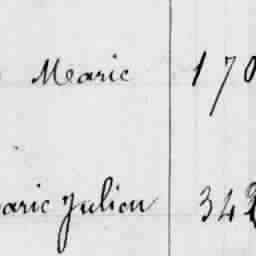 Marie 170
arie Julien 342